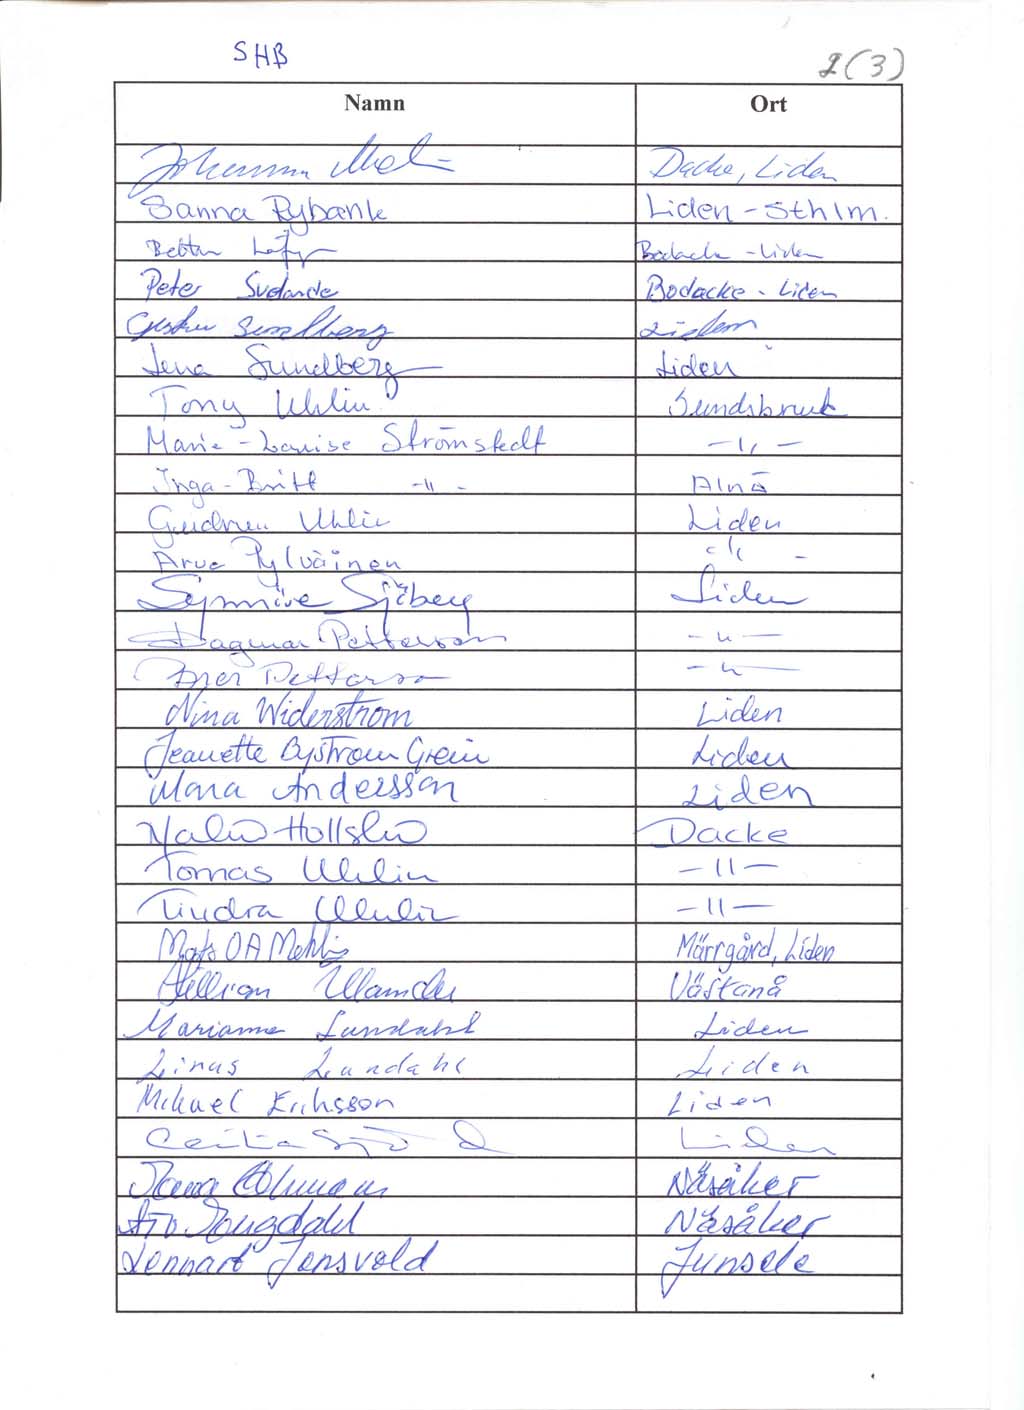 SHB
2(3)
Namn Ort
Johanna Dacke, Liden
Sanna Rybank Liden - Sthlm.
Bodacke - Liden
Peter Svelande Bodacke - Liden
Sundberg Liden
Lena Sundberg Liden
Tony Uhlin Sundsbruk
Marie - Louise Strömstedt -11-
Inga - Britt -11- Alnö
Gudrun Uhlin Liden
Arve Pylväinen -11-
Synnöve Sjöberg Liden
Dagmar Petterson -11-
Petterson -11-
Nina Widerström Liden
Jeanette Byström Grein Liden
Mona Andersson Liden
Malin Dacke
Tomas Uhlin -11-
Tindra Uhlin -11-
Mats OA Mehlin Märrgård, Liden
Västanå
Marianne Lundahl Liden
Linus Lundahl Liden
Mikael Erihsson Liden
Cecilia Liden
Öhman Näsåker
Engdahl Näsåker
Lennart Jonsvold Junsele